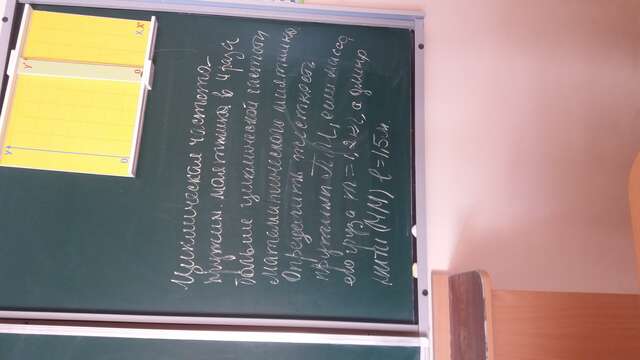 y
y'
0
0
x,x'
Циклическая частота
пружин. маятника в 4 раза
больше циклической частоты
математического маятника.
Определить жёсткость
пружины ПМ, если масса
его груза m=1,2кг, а длина
нити (ММ) l=1,5м.